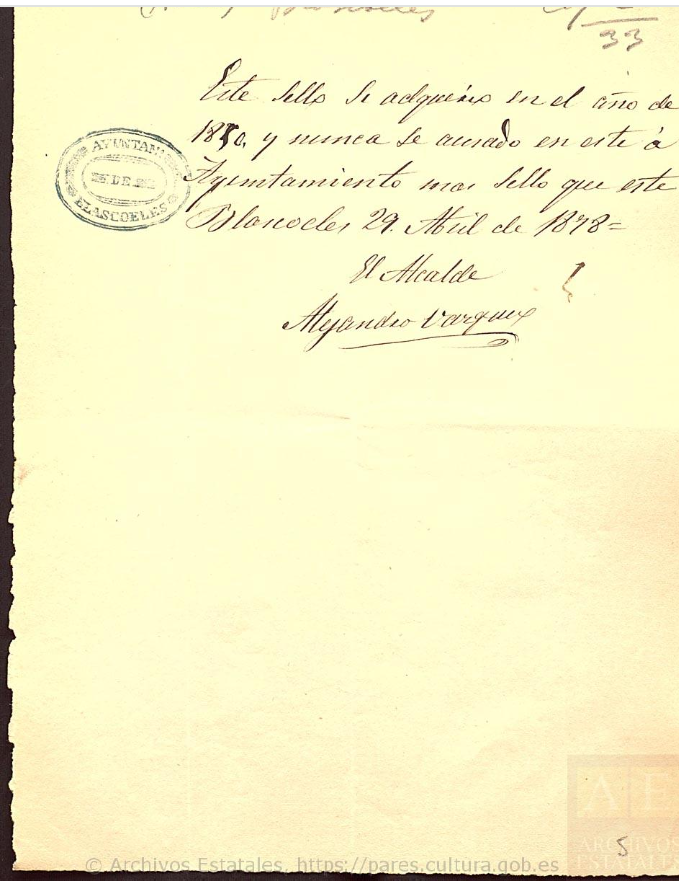 Blascoeles
33
Este sello se adquirio en el año de
1850, y nunca se ausado en este á
Ayuntamiento mas sello que este
Blascoeles 29. Abril de 1878=
El Alcalde
Alejandro Vazquez
AYUNTAM
DE
BLASCOELES
5
AE
ARCHIVOS
ESTATALES
© Archivos Estatales, https://pares.cultura.gob.es